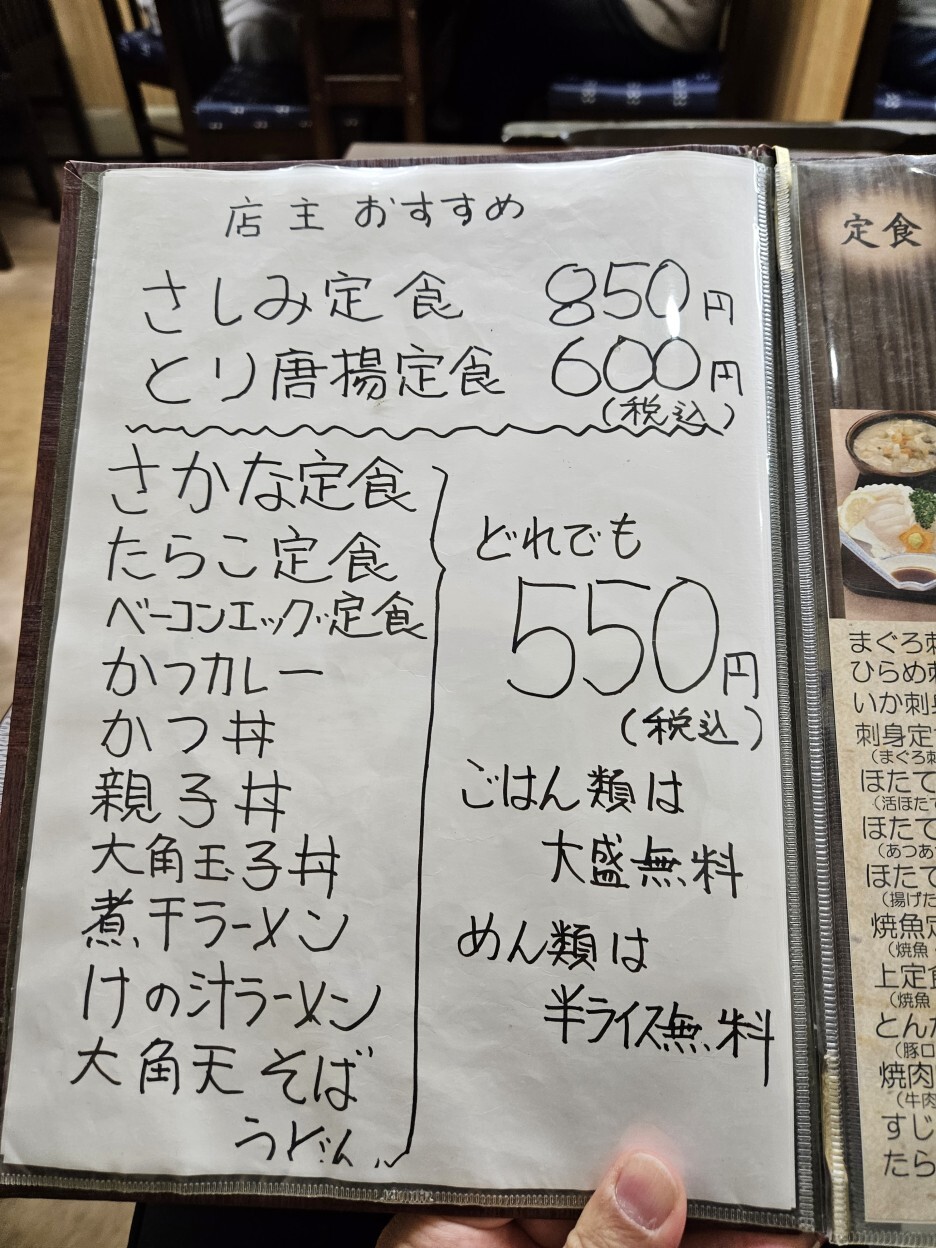 店主 おすすめ
さしみ定食 850円
とり唐揚定食 600円
(税込)
さかな定食
たらこ定食
ベーコンエッグ定食
かつカレー
かつ丼
親子丼
大角玉子丼
煮干ラーメン
けの汁ラーメン
大角天そば
うどん
どれでも
550円
(税込)
ごはん類は
大盛無料
めん類は
半ライス無料
定食
まぐろ刺
ひらめ刺
いか刺身
刺身定
(まぐろ刺
ほたて
(活ほたて
ほたて
(あつあ
ほたて
(揚げた
焼魚定
(焼魚・
上定食
(焼魚
とんた
(豚ロ
焼肉
(牛肉
すじ
たら